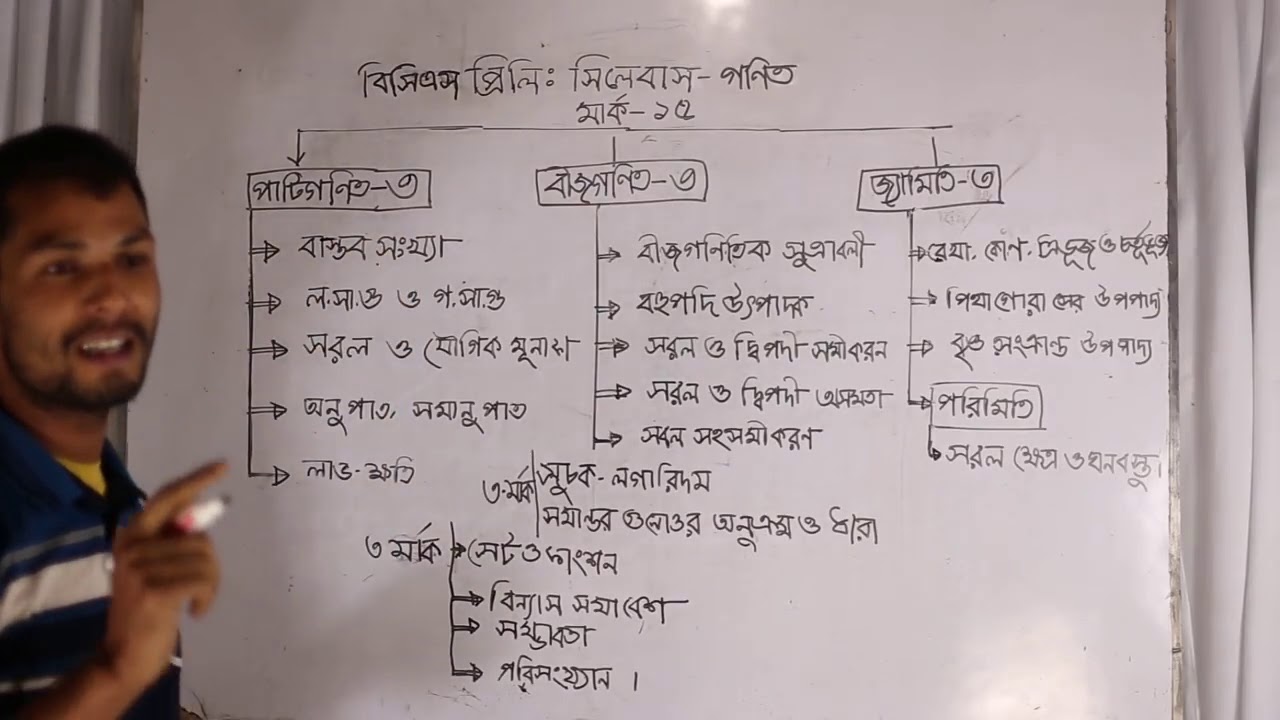 বিসিএস প্রিলিঃ সিলেবাস - গণিত
মার্ক - ১৫
পাটিগণিত - ৩
বাস্তব সংখ্যা
ল.সা.গু ও গ.সা.গু
সরল ও যৌগিক মুনাফা
অনুপাত, সমানুপাত
লাভ - ক্ষতি
বীজগণিত - ৩
বীজগণিতিক সুত্রাবলী
বহুপদি উৎপাদক
সরল ও দ্বিপদী সমীকরন
সরল ও দ্বিপদী অসমতা
সরল সহসমীকরণ
৩ মার্ক
সূচক - লগারিদম
সমান্তর গুনোওর অনুক্রম ও ধারা
৩ মার্ক
সেট ও ফাংশন
বিন্যাস সমাবেশ
সম্ভাবতা
পরিসংখ্যান ।
জ্যামিতি - ৩
রেখা, কোণ, ত্রিভূজ ও চর্তুভূজ
পিথাগোরাসের উপপাদ্য
বৃত্ত সংক্রান্ত উপপাদ্য
পরিমিতি
সরল ক্ষেত্র ও ঘনবস্তু।